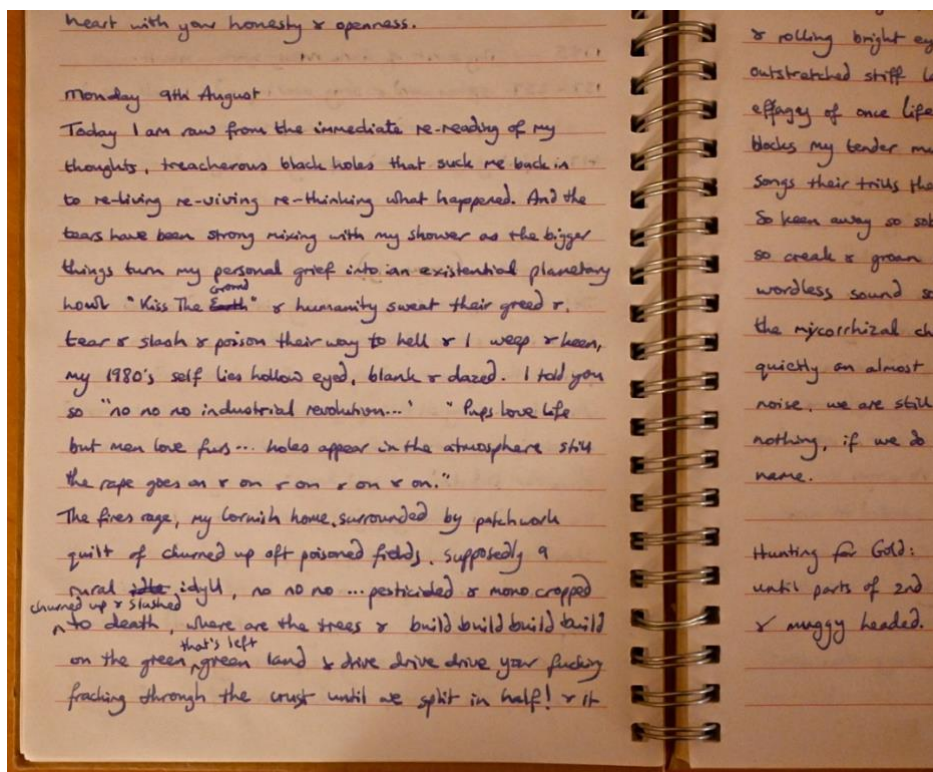 heart with your honesty & openness.
Monday 9th August
Today I am raw from the immediate re-reading of my
thoughts, treacherous black holes that suck me back in
to re-living re-viving re-thinking what happened. And the
tears have been strong mixing with my shower as the bigger
things turn my personal grief into an existential planetary
ground
howl "Kiss The Earth" & humanity sweat their greed &,
tear & slash & poison their way to hell & I weep & keen,
my 1980's self lies hollow eyed, blank & dazed. I told you
so "no no no industrial revolution...' " Pups love life
but men love furs... holes appear in the atmosphere still
the rape goes on & on & on & on & on."
The fires rage, my Cornish home, surrounded by patchwork
quilt of churned up oft poisoned fields, supposedly a
rural idyll, no no no ... pesticided & mono cropped
churned up & slashed
^to death, where are the trees & build build build build
that's left
on the green ^green land & drive drive drive your fucking
fracking through the crust until we split in half! & it
& rolling bright ey
outstretched stiff l
effagey of once life
blocks my tender mu
songs their trills the
So keen away so sob
so creak & groan
wordless sound so
the mycorrhizal ch
quietly an almost
noise, we are still
nothing, if we do
name.
Hunting for Gold:
until parts of 2nd
& muggy headed.